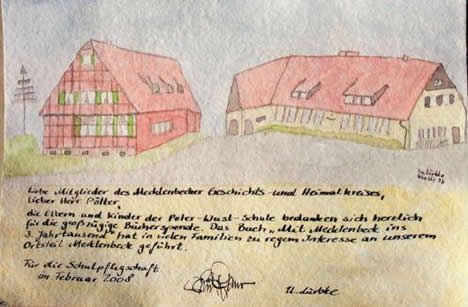 Liebe Mitglieder des Mecklenbecker Geschichts- und Heimatkreises,
lieber Herr Pötter,
die Eltern und Kinder der Peter-Wust-Schule bedanken sich herzlich
für die großzügige Bücherspende. Das Buch „Mit Mecklenbeck ins
3. Jahrtausend" hat in vielen Familien zu regem Interesse an unserem
Ortsteil Mecklenbeck geführt.
Für die Schulpflegschaft
im Februar 2008
U. Lübke